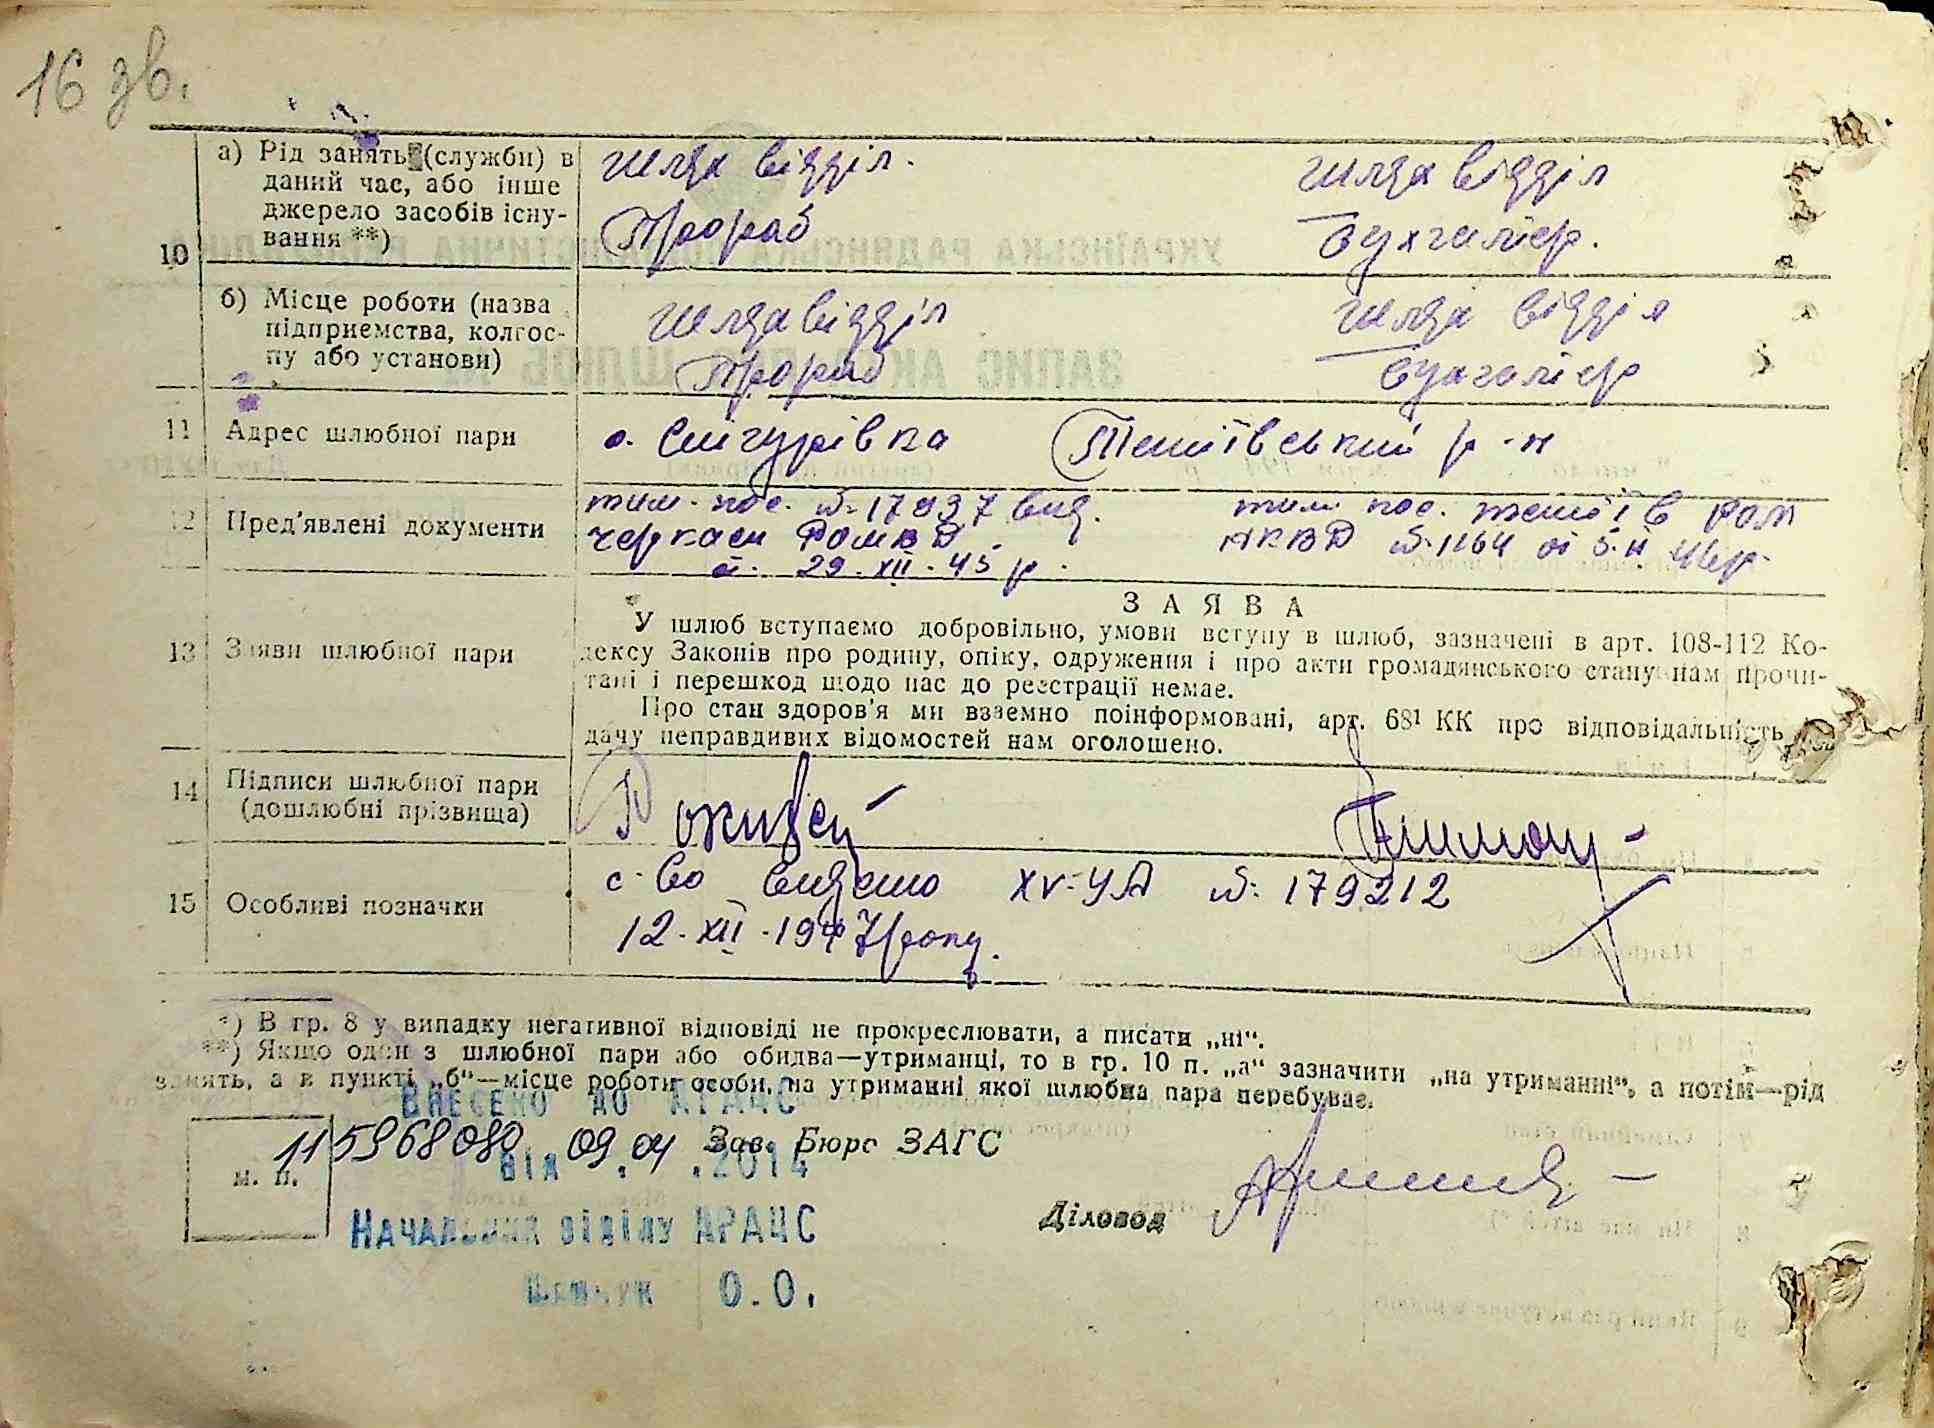 16 зв.
10
а) Рід занять (служби) в даний час, або інше джерело засобів існування **)
відділ.
Прораб
відділ
Бухгалтер.
б) Місце роботи (назва підприємства, колгоспу або установи)
відділ
Прораб
відділ
бухгалтер
11 Адрес шлюбної пари
с. Снігурівка Тетіївський р-н
12 Пред'явлені документи
тим. пос. № 17937 вид.
Черкаси
29.XII.45 р.
тим. пос. Тетіїв
НКВД № 1164
13 Заяви шлюбної пари
ЗАЯВА
У шлюб вступаємо добровільно, умови вступу в шлюб, зазначені в арт. 108-112 Ко-
дексу Законів про родину, опіку, одруження і про акти громадянського стану нам прочи-
тані і перешкод щодо нас до реєстрації немає.
Про стан здоров'я ми взаємно поінформовані, арт. 68¹ КК про відповідальність
дачу неправдивих відомостей нам оголошено.
14 Підписи шлюбної пари
(дошлюбні прізвища)
15 Особливі позначки
с-во видано XV-УА № 179212
12.XII.1947 року.
*) В гр. 8 у випадку негативної відповіді не прокреслювати, а писати „ні“.
**) Якщо один з шлюбної пари або обидва—утриманці, то в гр. 10 п. „а“ зазначити „на утриманні“, а потім—рід
занять, а в пункті „б“—місце роботи особи, на утриманні якої шлюбна пара перебуває.
Внесено до ДРАЦС
115968080 09.04
Зав. Бюро ЗАГС
від . .2014
м. п.
Начальник відділу ДРАЦС
Діловод
О.О.